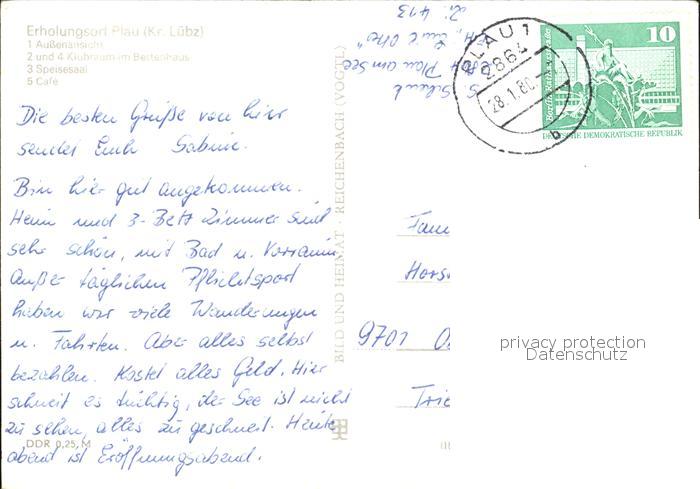 Erholungsort Plau (Kr. Lübz)
1 Außenansicht
2 und 4 Klubraum im Bettenhaus
3 Speisesaal
5 Café
Die besten Grüße von hier
sendet Euch Sabine.
Bin hier gut angekommen.
Heim und 3-Bett Zimmer sind
sehr schön, mit Bad u. Vorraum
außer täglichen Pflichtsport
haben wir viele Wanderungen
u. Fahrten. Aber alles selbst
bezahlen. Kostet alles Geld. Hier
schneit es tüchtig, der See ist nicht
zu sehen, alles zu geschneit. Heute
abend ist Eröffnungsabend.
DDR 0,25 M
BILD UND HEIMAT · REICHENBACH (VOGTL)
Plau am See
Zi. 413
PLAU 1
2864
28.1.80
b
10
DEUTSCHE DEMOKRATISCHE REPUBLIK
Fam
Hors
9701
Trie
privacy protection
Datenschutz